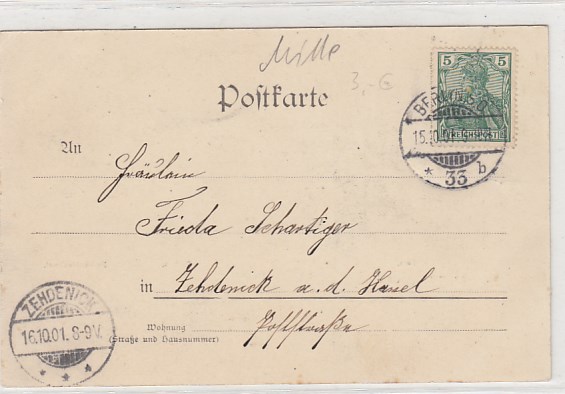 Mille
3,- €
5
REICHSPOST
BERLIN S.O.
15.10.01
* 33 b
Postkarte
An
Fräulein
Frieda Schartiger
in Zehdenick a. d. Havel
Poststraße
Wohnung
(Straße und Hausnummer)
ZEHDENICK
16.10.01. 8-9V.
* * *